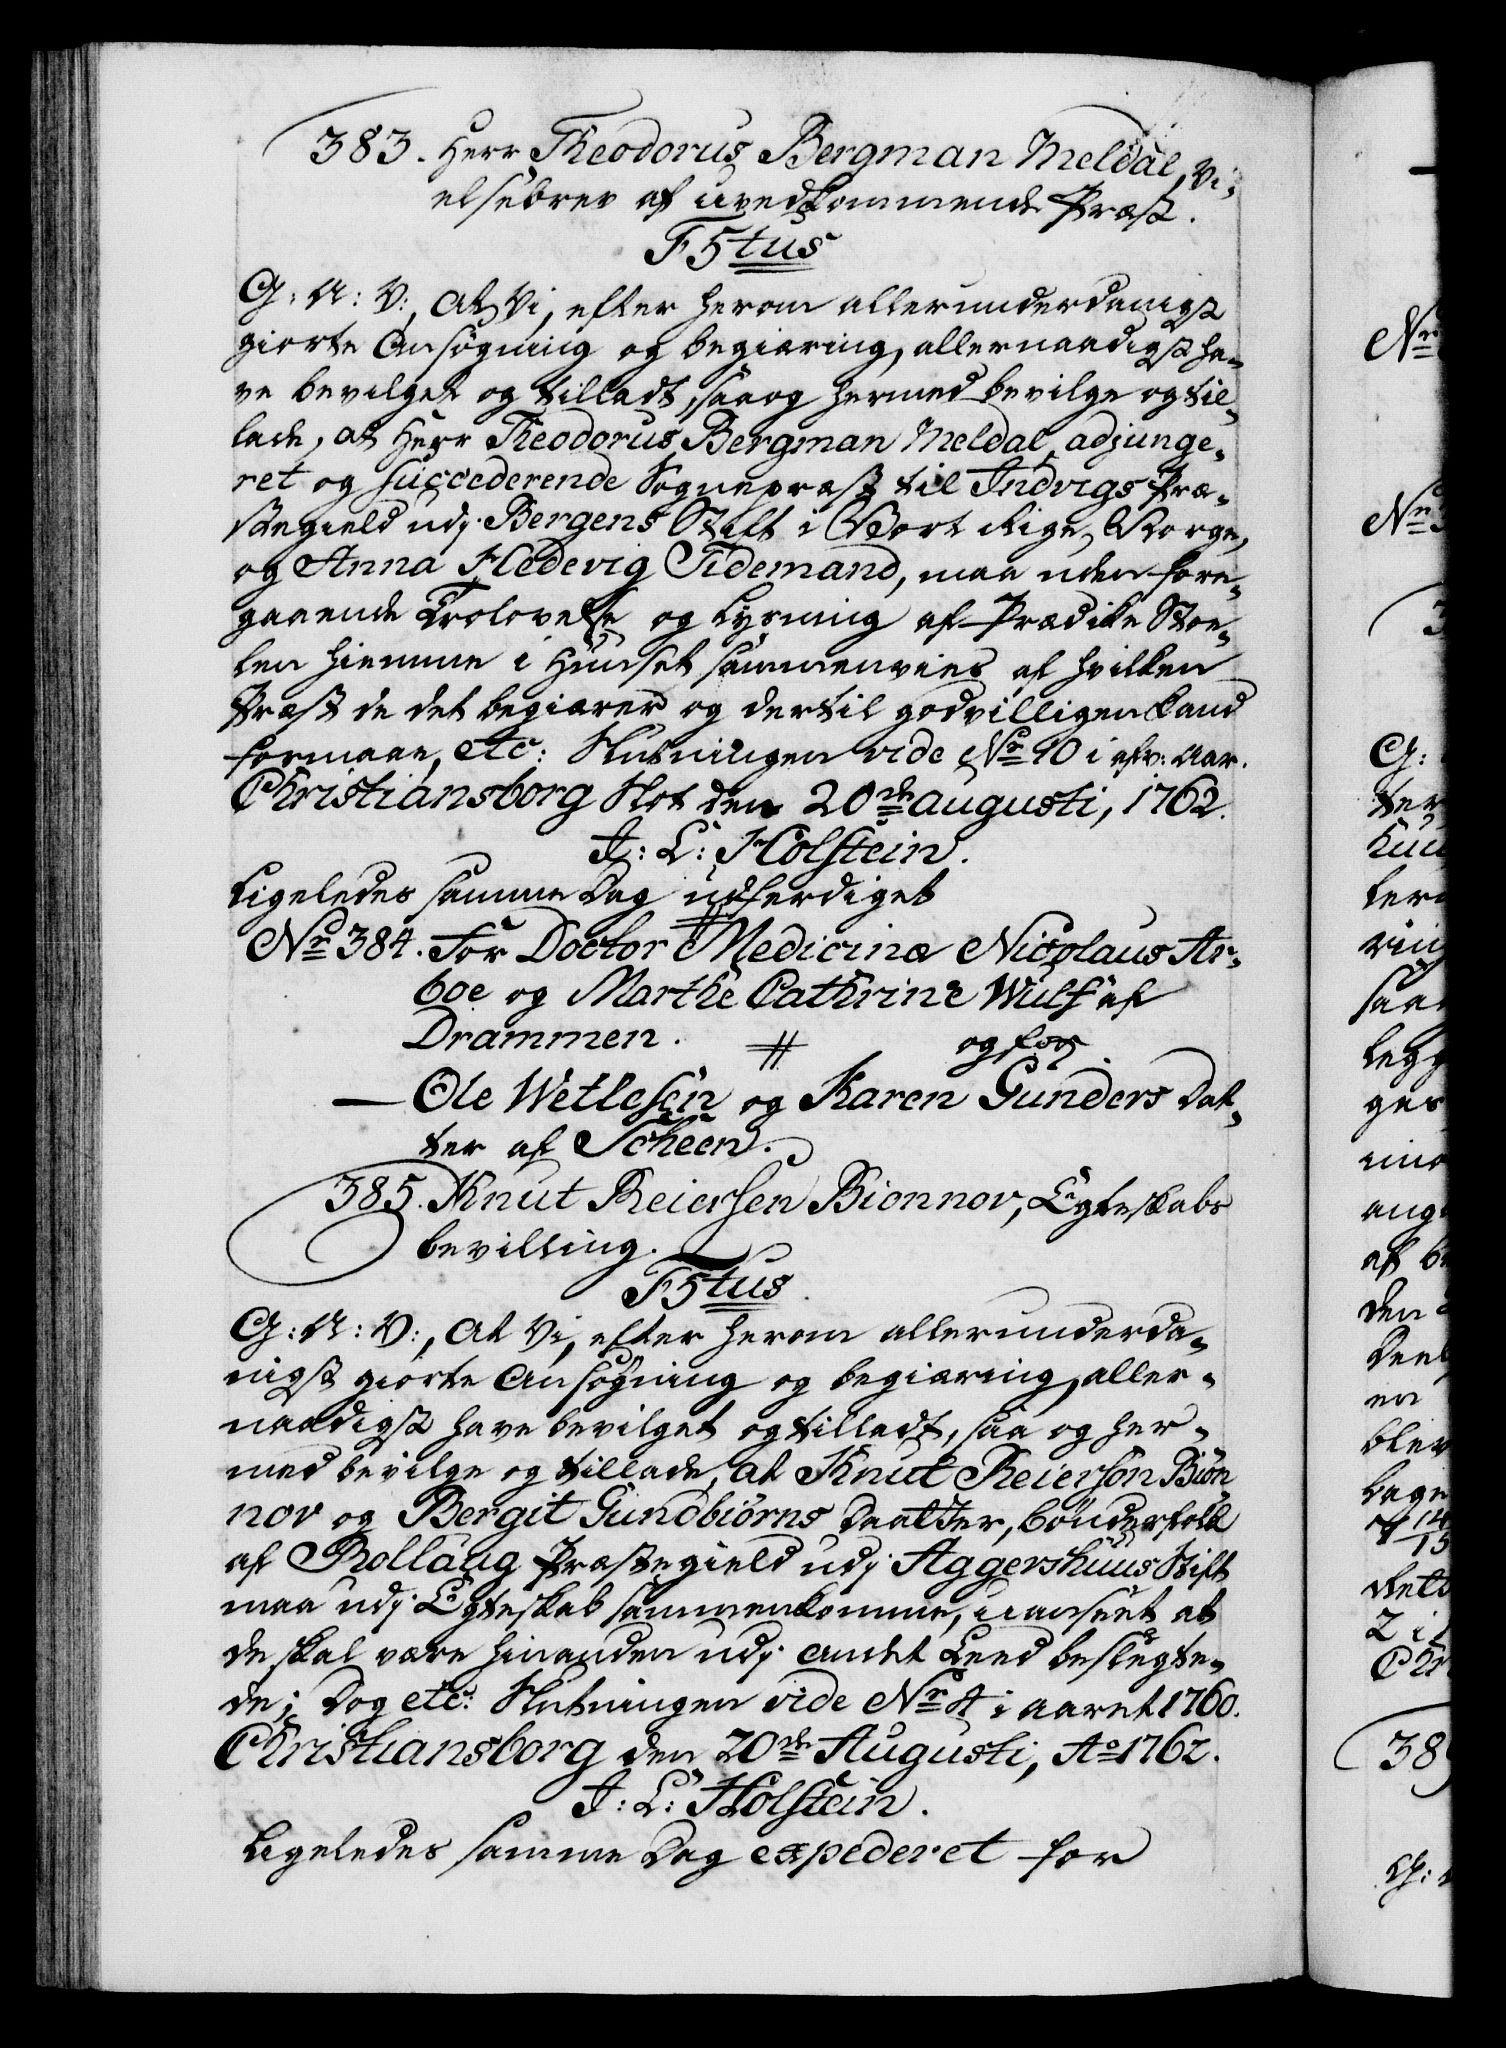 383. Herr Theodorus Bergman Meldal, Vi-
elsebrev af uvedkommende Præst.
F5tus
G: A: V:, At Vi, efter herom allerunderdanigst
giorte Ansøgning og begiæring, allernaadigst ha-
ve bevilget og tilladt, saa og hermed bevilge og til-
lade, at Herr Theodorus Bergman Meldal, adjunge-
ret og succederende Sognepræst til Indvigs Præ-
stegield udj Bergens Stift i Vort Rige Norge,
og Anna Hedevig Tidemand, maa uden fore-
gaaende Trolovelse og Lysning af Prædike Stoe-
len hiemme i Huuset sammenvies af hvilken
Præst de det begiærer og dertil godvilligen kand
formaae, etc: Slutningen vide No 90 i afv: Aar.
Christiansborg Slot den 20de augusti, 1762.
J: L: Holstein.
Ligeledes samme Dag udferdiget
Nr 384. For Doctor Medicinæ Nicolaus Ar-
boe og Marthe Cathrine Wulf af
Drammen. # og for
— Ole Wetlesen og Karen Gunders Dat-
ter af Scheen.
385. Knut Reiersen Bionnov, Egteskabs
bevilling.
F5tus.
G: A: V:, At Vi, efter herom allerunderda-
nigst giorte Ansøgning og begiæring, aller-
naadigst have bevilget og tilladt, saa og her-
med bevilge og tillade, at Knut Reiersøn Biøn
nov og Bergit Gundbiørns Daatter, bønderfolk
af Rollaug Præstegield udj Aggershuus Stift
maa udj Egteskab sammenkomme, uanseet at
de skal være hinanden udj andet Leed beslegte-
de; Dog etc: Slutningen vide Nr 4 i aaret 1760.
Christiansborg den 20de Augusti, Ao 1762.
J: L: Holstein.
Ligeledes samme Dag expederet for